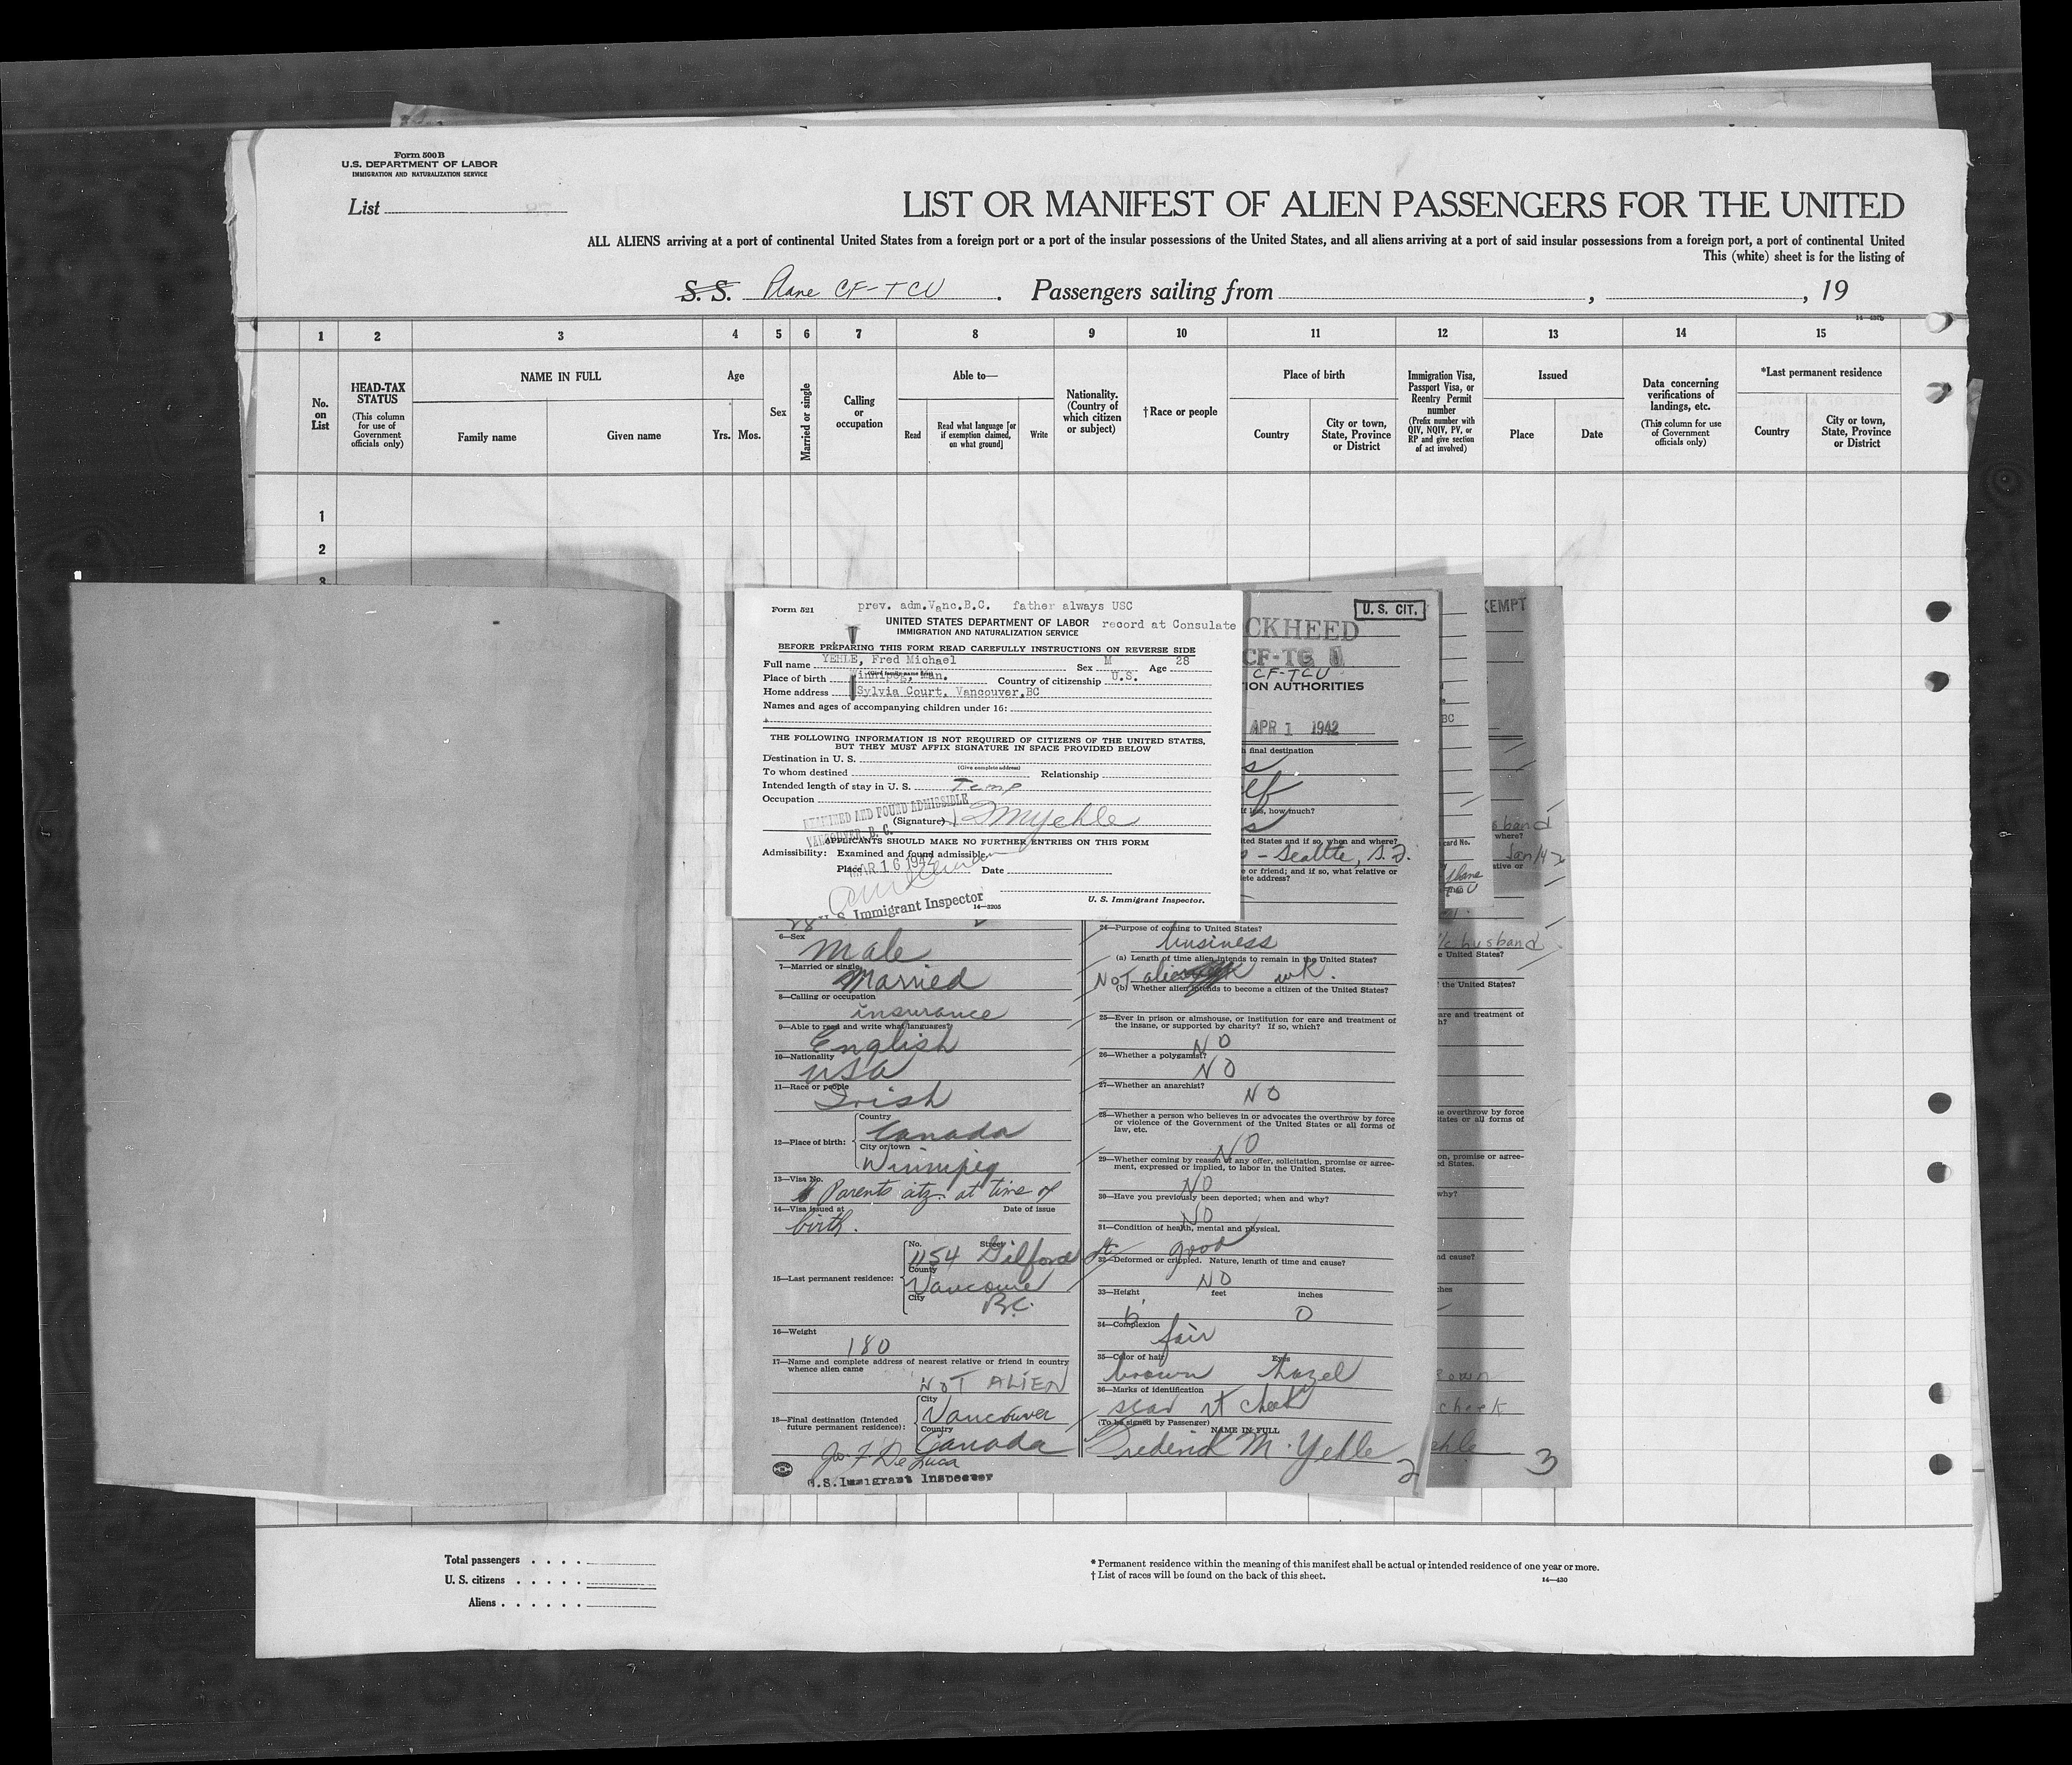 Form 500 B
U.S. DEPARTMENT OF LABOR
IMMIGRATION AND NATURALIZATION SERVICE
List
LIST OR MANIFEST OF ALIEN PASSENGERS FOR THE UNITED
ALL ALIENS arriving at a port of continental United States from a foreign port or a port of the insular possessions of the United States, and all aliens arriving at a port of said insular possessions from a foreign port, a port of continental United
This (white) sheet is for the listing of
S. S. Plane CF-TCU . Passengers sailing from , , 19
1 2 3 4 5 6 7 8 9 10 11 12 13 14 15
No. on List
HEAD-TAX STATUS
(This column for use of Government officials only)
NAME IN FULL
Family name Given name
Age
Yrs. Mos.
Sex
Married or single
Calling or occupation
Able to—
Read
Read what language [or if exemption claimed, on what ground]
Write
Nationality. (Country of which citizen or subject)
† Race or people
Place of birth
Country
City or town, State, Province or District
Immigration Visa, Passport Visa, or Reentry Permit number
(Prefix number with QIV, NQIV, PV, or RP and give section of act involved)
Issued
Place Date
Data concerning verifications of landings, etc.
(This column for use of Government officials only)
*Last permanent residence
Country
City or town, State, Province or District
1
2
3
Form 521
prev. adm.Vanc.B.C. father always USC
UNITED STATES DEPARTMENT OF LABOR record at Consulate
IMMIGRATION AND NATURALIZATION SERVICE
BEFORE PREPARING THIS FORM READ CAREFULLY INSTRUCTIONS ON REVERSE SIDE
Full name YEHLE, Fred Michael Sex M Age 28
Place of birth Winnipeg, Man. Country of citizenship U.S.
Home address Sylvia Court, Vancouver,BC
Names and ages of accompanying children under 16:
THE FOLLOWING INFORMATION IS NOT REQUIRED OF CITIZENS OF THE UNITED STATES,
BUT THEY MUST AFFIX SIGNATURE IN SPACE PROVIDED BELOW
Destination in U. S.
(Give complete address)
To whom destined Relationship
Intended length of stay in U. S. Temp
Occupation
EXAMINED AND FOUND ADMISSIBLE
(Signature) FMYehle
VANCOUVER, B. C.
APPLICANTS SHOULD MAKE NO FURTHER ENTRIES ON THIS FORM
Admissibility: Examined and found admissible,
Place MAR 16 1942 Date
U. S. Immigrant Inspector
14—3205 U. S. Immigrant Inspector.
U. S. CIT.
CKHEED
CF-TC
CF-TCU
ION AUTHORITIES
APR 1 1942
h final destination
s
elf
f less, how much?
s
ted States and if so, when and where?
- Seattle,
e or friend; and if so, what relative or
ete address?
28
6—Sex
Male
7—Married or single
Married
8—Calling or occupation
insurance
9—Able to read and write what languages?
English
10—Nationality
USA
11—Race or people
Irish
12—Place of birth:
Country
Canada
City or town
Winnipeg
13—Visa No.
Parents citz. at time of
14—Visa issued at Date of issue
birth.
No. Street
1154 Gilford St.
15—Last permanent residence:
County
Vancouver
City
B.C.
16—Weight
180
17—Name and complete address of nearest relative or friend in country
whence alien came
NOT ALIEN
18—Final destination (Intended
future permanent residence):
City
Vancouver
Country
Canada
Jos F De Luca
U.S. Immigrant Inspector
24—Purpose of coming to United States?
business
(a) Length of time alien intends to remain in the United States?
NOT alien wk.
(b) Whether alien intends to become a citizen of the United States?
25—Ever in prison or almshouse, or institution for care and treatment of
the insane, or supported by charity? If so, which?
NO
26—Whether a polygamist?
NO
27—Whether an anarchist?
NO
28—Whether a person who believes in or advocates the overthrow by force
or violence of the Government of the United States or all forms of
law, etc.
NO
29—Whether coming by reason of any offer, solicitation, promise or agree-
ment, expressed or implied, to labor in the United States.
NO
30—Have you previously been deported; when and why?
NO
31—Condition of health, mental and physical.
good
32—Deformed or crippled. Nature, length of time and cause?
NO
33—Height feet inches
6 0
34—Complexion
fair
35—Color of hair Eyes
brown hazel
36—Marks of identification
scar rt cheek
(To be signed by Passenger)
NAME IN FULL
Frederick M. Yehle
2
EMPT
BC
sband
where?
card No.
Jan/42
ative or
c husband
e United States?
the United States?
are and treatment of
h?
e overthrow by force
tates or all forms of
on, promise or agree-
ed States.
why?
nd cause?
ches
cheek
ehle
3
Total passengers . . . .
U. S. citizens . . . . .
Aliens . . . . . .
* Permanent residence within the meaning of this manifest shall be actual or intended residence of one year or more.
† List of races will be found on the back of this sheet.
14—430